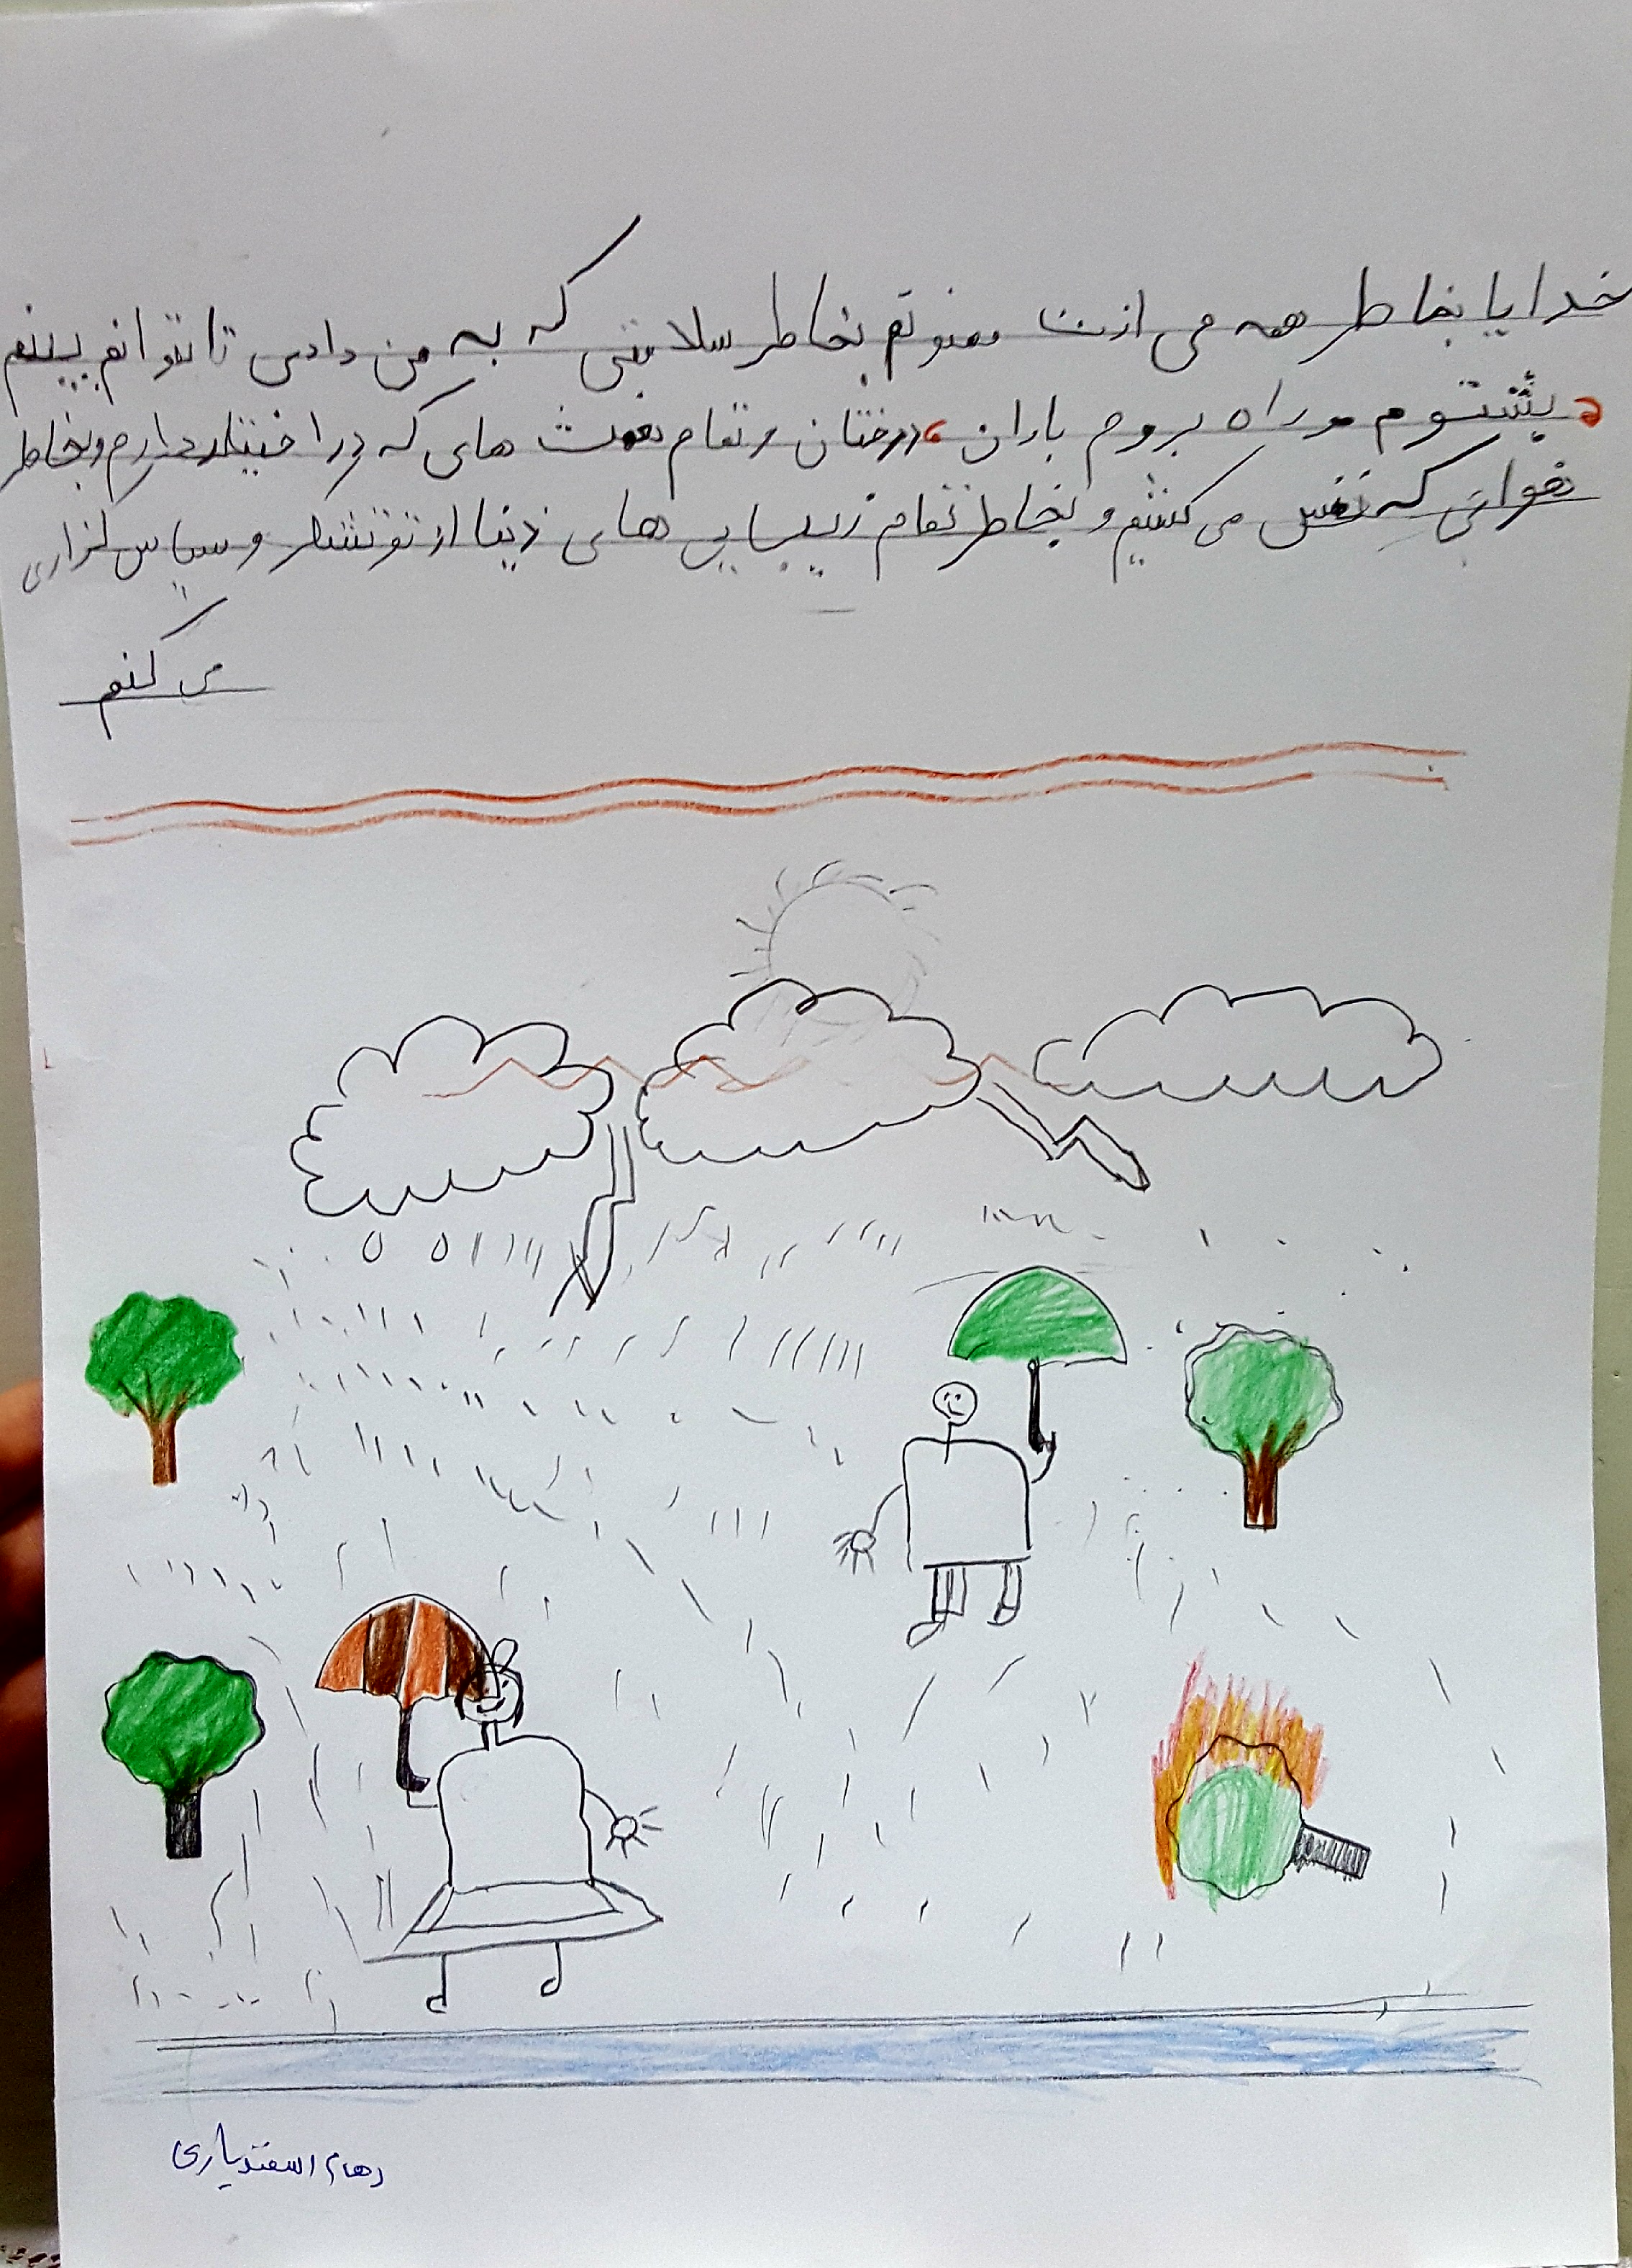 خدایا بخاطر همه می ازت ممنونم بخاطر سلامتی که به من دادی تا بتوانم ببینم
بشنوم و راه بروم باران، درختان و تمام نعمت های که در اختیار دارم و بخاطر
هوای که نفس می کشیم و بخاطر تمام زیبایی های دنیا از تو تشکر و سپاس گزاری
می کنم
رهام اسفندیاری